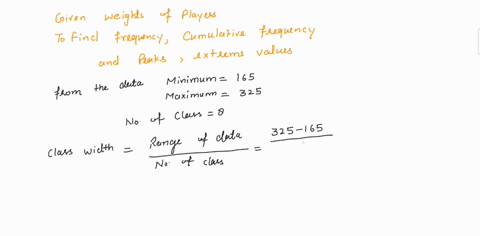 Given weights of Players
To Find frequency, Cumulative frequency
and Peaks, extreme values
from the data Minimum = 165
Maximum = 325
No. of Class = 8
Class width = Range of data / No. of class = 325-165